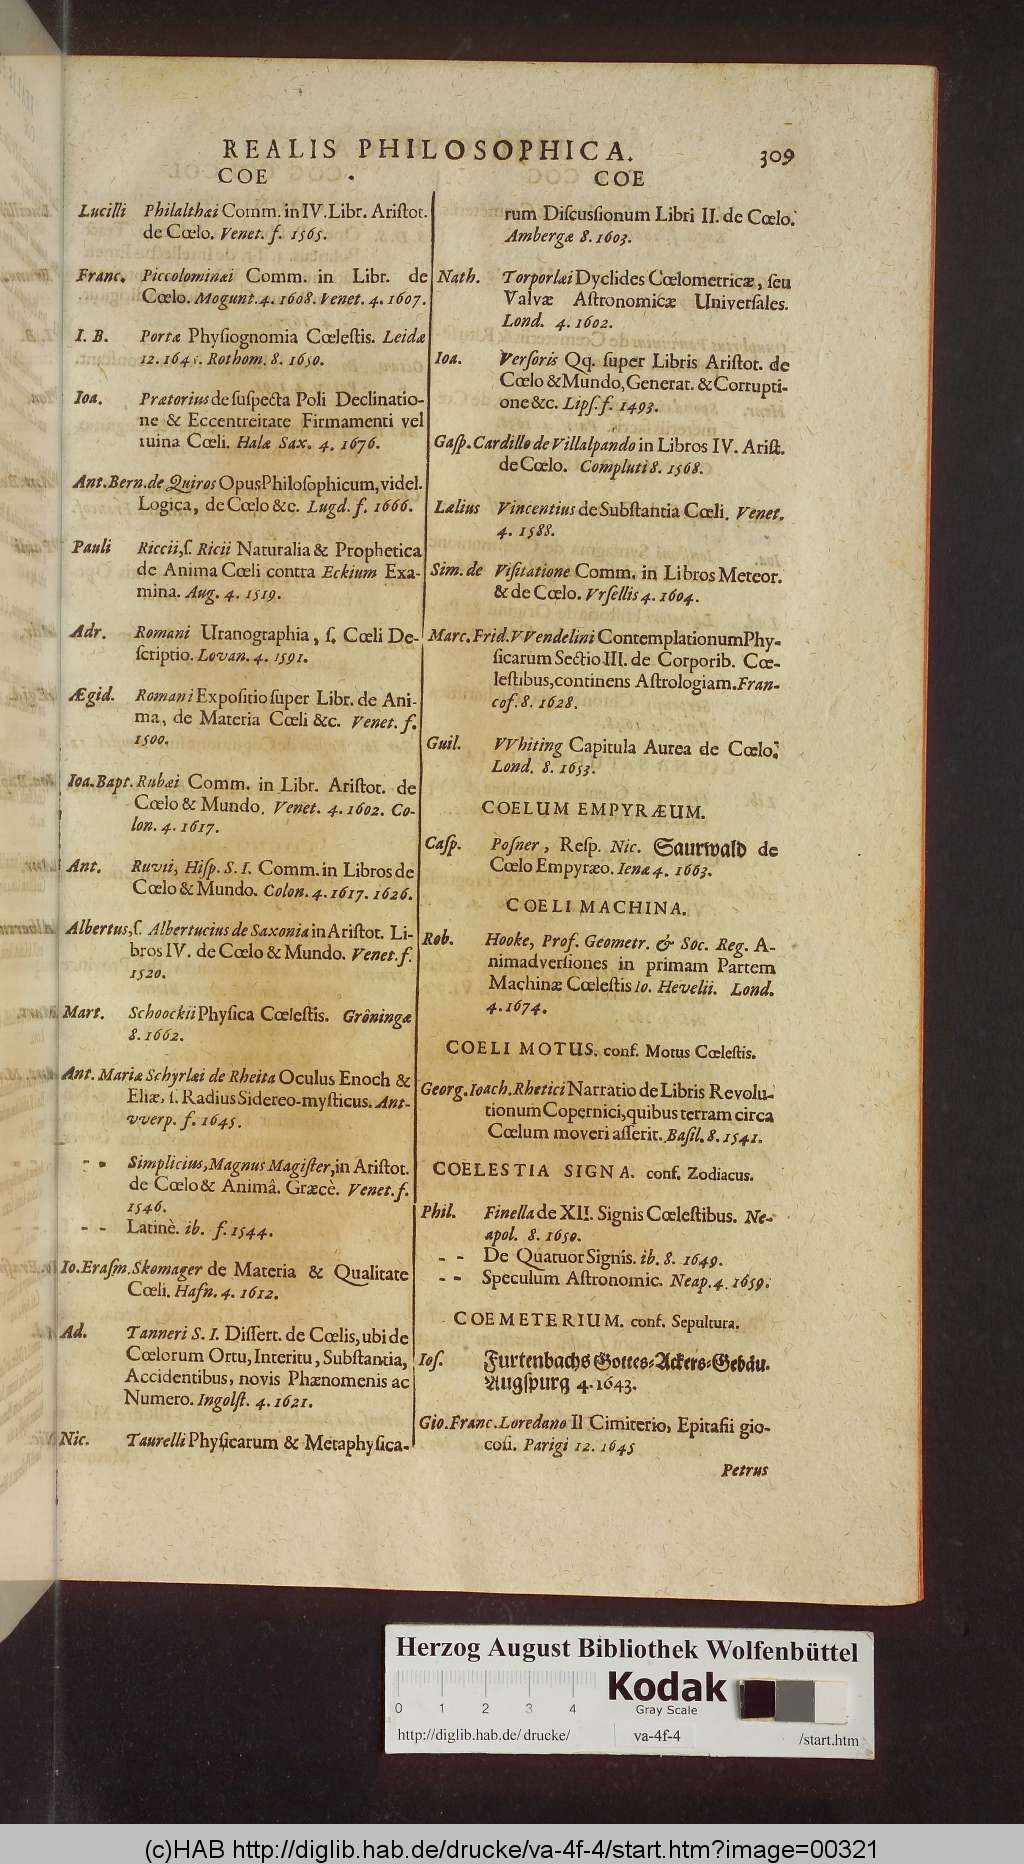 REALIS PHILOSOPHICA. 309
COE COE
Lucilli Philalthæi Comm. in IV. Libr. Aristot.
de Cœlo. Venet. f. 1565.
Franc. Piccolominæi Comm. in Libr. de
Cœlo. Mogunt. 4. 1608. Venet. 4. 1607.
I. B. Portæ Physiognomia Cœlestis. Leidæ
12. 1645. Rothom. 8. 1650.
Ioa. Prætorius de suspecta Poli Declinatio-
ne & Eccentreitate Firmamenti vel
ruina Cœli. Halæ Sax. 4. 1676.
Ant. Bern. de Quiros Opus Philosophicum, videl.
Logica, de Cœlo &c. Lugd. f. 1666.
Pauli Riccii, ſ. Ricii Naturalia & Prophetica
de Anima Cœli contra Eckium Exa-
mina. Aug. 4. 1519.
Adr. Romani Uranographia, ſ. Cœli De-
scriptio. Lovan. 4. 1591.
Ægid. Romani Expositio super Libr. de Ani-
ma, de Materia Cœli &c. Venet. f.
1500.
Ioa. Bapt. Rubæi Comm. in Libr. Aristot. de
Cœlo & Mundo. Venet. 4. 1602. Co-
lon. 4. 1617.
Ant. Ruvii, Hisp. S. I. Comm. in Libros de
Cœlo & Mundo. Colon. 4. 1617. 1626.
Albertus, ſ. Albertucius de Saxonia in Aristot. Li-
bros IV. de Cœlo & Mundo. Venet. f.
1520.
Mart. Schoockii Physica Cœlestis. Grôningæ
8. 1662.
Ant. Mariæ Schyrlæi de Rheita Oculus Enoch &
Eliæ, ſ. Radius Sidereo-mysticus. Ant-
vverp. f. 1645.
- - Simplicius, Magnus Magister, in Aristot.
de Cœlo & Animâ. Græcè. Venet. f.
1546.
- - Latinè. ib. f. 1544.
Io. Erasm. Skomager de Materia & Qualitate
Cœli. Hafn. 4. 1612.
Ad. Tanneri S. I. Dissert. de Cœlis, ubi de
Cœlorum Ortu, Interitu, Substantia,
Accidentibus, novis Phænomenis ac
Numero. Ingolst. 4. 1621.
Nic. Taurelli Physicarum & Metaphysica-
rum Discussionum Libri II. de Cœlo.
Ambergæ 8. 1603.
Nath. Torporlæi Dyclides Cœlometricæ, seu
Valvæ Astronomicæ Universales.
Lond. 4. 1602.
Ioa. Versoris Qq. super Libris Aristot. de
Cœlo & Mundo, Generat. & Corrupti-
one &c. Lips. f. 1493.
Gasp. Cardillo de Villalpando in Libros IV. Arist.
de Cœlo. Compluti 8. 1568.
Lælius Vincentius de Substantia Cœli. Venet.
4. 1588.
Sim. de Visitatione Comm. in Libros Meteor.
& de Cœlo. Vrsellis 4. 1604.
Marc. Frid. VVendelini Contemplationum Phy-
sicarum Sectio III. de Corporib. Cœ-
lestibus, continens Astrologiam. Fran-
cof. 8. 1628.
Guil. VVhiting Capitula Aurea de Cœlo.
Lond. 8. 1653.
COELUM EMPYRÆUM.
Casp. Posner, Resp. Nic. Saurwald de
Cœlo Empyræo. Ienæ 4. 1663.
COELI MACHINA.
Rob. Hooke, Prof. Geometr. & Soc. Reg. A-
nimadversiones in primam Partem
Machinæ Cœlestis Io. Hevelii. Lond.
4. 1674.
COELI MOTUS. conf. Motus Cœlestis.
Georg. Ioach. Rhetici Narratio de Libris Revolu-
tionum Copernici, quibus terram circa
Cœlum moveri asserit. Basil. 8. 1541.
COELESTIA SIGNA. conf. Zodiacus.
Phil. Finella de XII. Signis Cœlestibus. Ne-
apol. 8. 1650.
- - De Quatuor Signis. ib. 8. 1649.
- - Speculum Astronomic. Neap. 4. 1659.
COEMETERIUM. conf. Sepultura.
Ios. Furtenbachs Gottes-Ackers-Gebäu.
Augspurg 4. 1643.
Gio. Franc. Loredano Il Cimiterio, Epitafii gio-
cosi. Parigi 12. 1645
Petrus
Herzog August Bibliothek Wolfenbüttel
0 1 2 3 4
Kodak
Gray Scale
http://diglib.hab.de/drucke/ va-4f-4 /start.htm
(c)HAB http://diglib.hab.de/drucke/va-4f-4/start.htm?image=00321